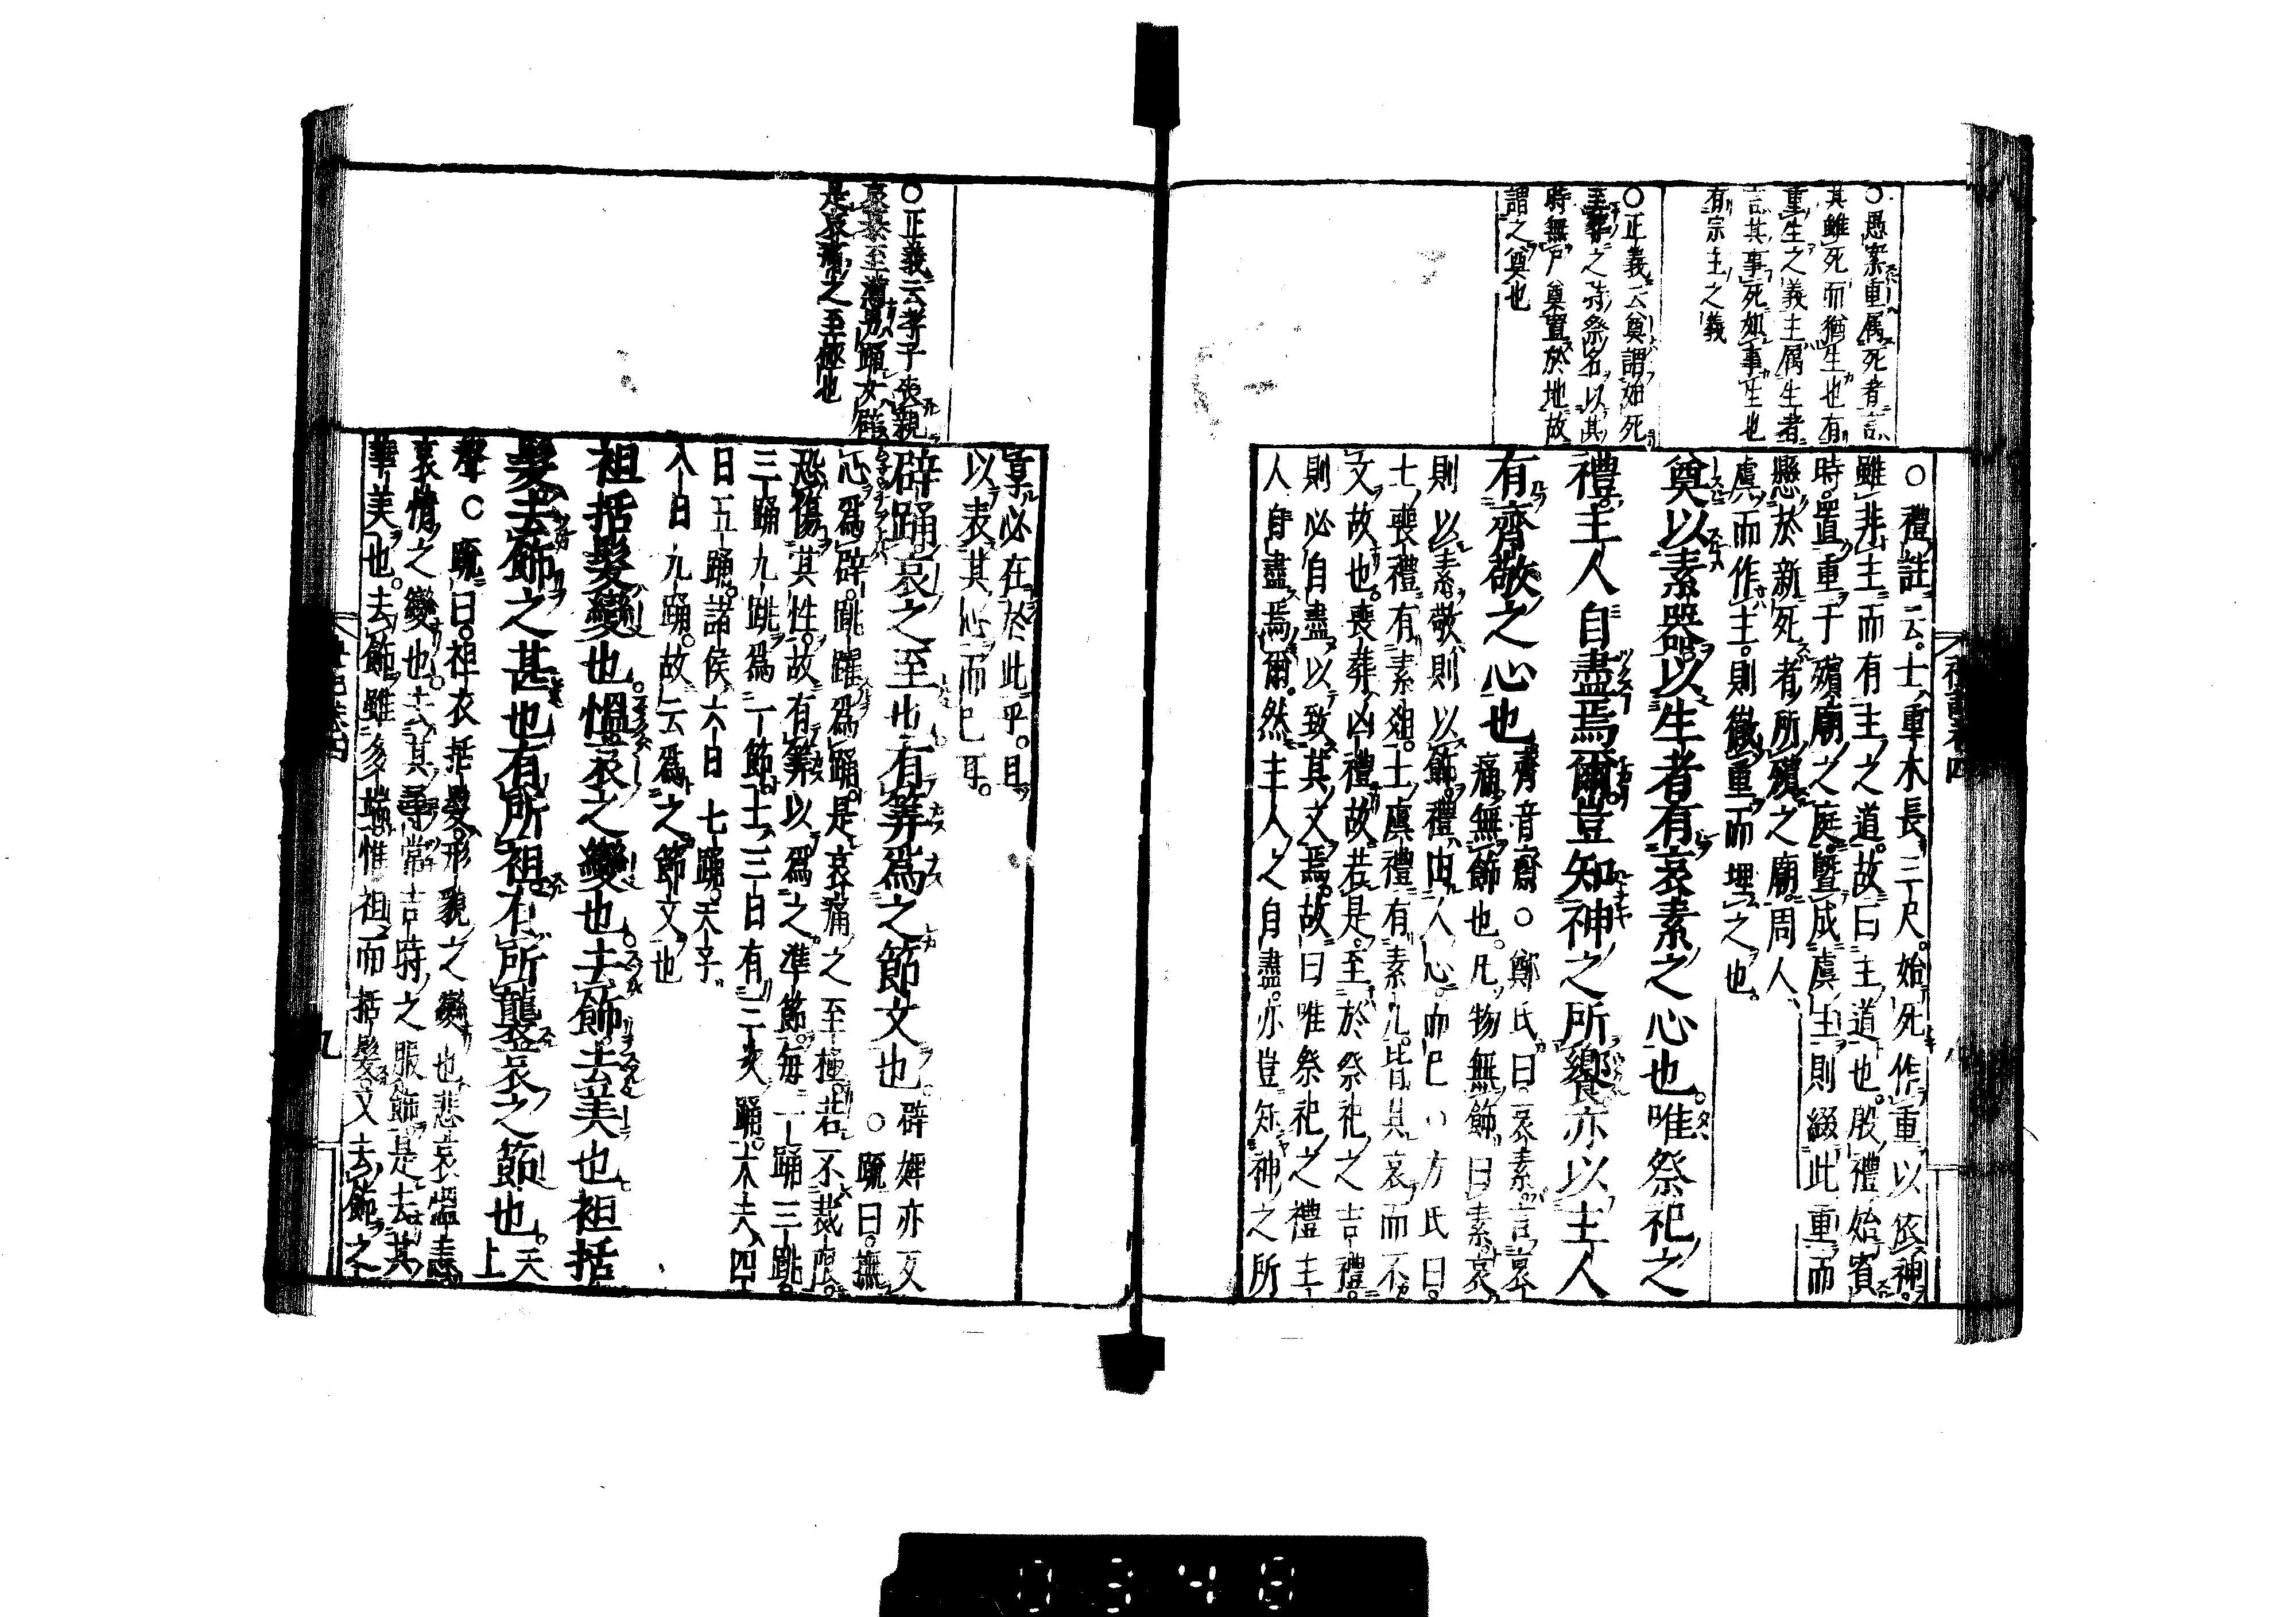 ○愚案重属死者言
其雖死而猶生也有
重生之義主属生者
言其事死如事生也
有宗主之義
○正義云奠謂始死
至葬之時祭名以其
時無尸奠置於地故
謂之奠也
○禮註云士重木長三尺始死作重以依神
雖非主而有主之道故曰主道也殷禮始賓
時置重于殯廟之庭暨成虞主則綴此重而
懸於新死者所殯之廟周人
虞而作主則徹重而埋之也
奠以素器以生者有哀素之心也唯祭祀之
禮主人自盡焉爾豈知神之所饗亦以主人
有齊敬之心也
齊音齋○鄭氏曰哀素言哀
痛無飾也凡物無飾曰素哀
則以素敬則以飾禮由人心而已○方氏曰
士喪禮有素俎士虞禮有素几皆其哀而不
文故也喪葬凶禮故若是至於祭祀之吉禮
則必自盡以致其文焉故曰唯祭祀之禮主
人自盡焉爾然主人之自盡亦豈知神之所
禮記卷四
○正義云孝子喪親
哀慕至懣男踊女辟
是哀痛之至極也
享必在於此乎且
以表其心而已耳
辟踊哀之至也有筭爲之節文也
辟婢亦反
○疏曰撫
心爲辟跳躍爲踊是哀痛之至極若不裁限
恐傷其性故有筭以爲之準節每一踊三跳
三踊九跳爲一節士三日有三次踊大夫四
日五踊諸侯六日七踊天子
八日九踊故云爲之節文也
袒括髮變也慍哀之變也去飾去美也袒括
髮去飾之甚也有所袒有所襲哀之節也
上
聲○疏曰袒衣括髮形貌之變也悲哀慍恚
哀情之變也去其尋常吉時之服飾是去其
華美也去飾雖多端惟袒而括髮又去飾之
九
0348